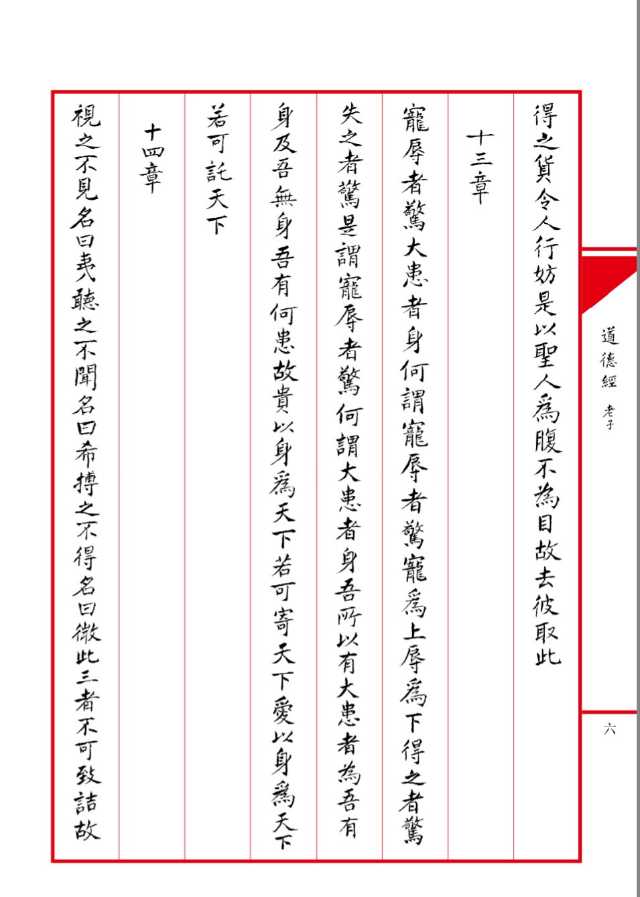 得之貨令人行妨是以聖人爲腹不為目故去彼取此
十三章
寵辱者驚大患者身何謂寵辱者驚寵爲上辱爲下得之者驚
失之者驚是謂寵辱者驚何謂大患者身吾所以有大患者為吾有
身及吾無身吾有何患故貴以身爲天下若可寄天下愛以身爲天下
若可託天下
十四章
視之不見名曰夷聽之不聞名曰希搏之不得名曰微此三者不可致詰故
道德經 老子
六